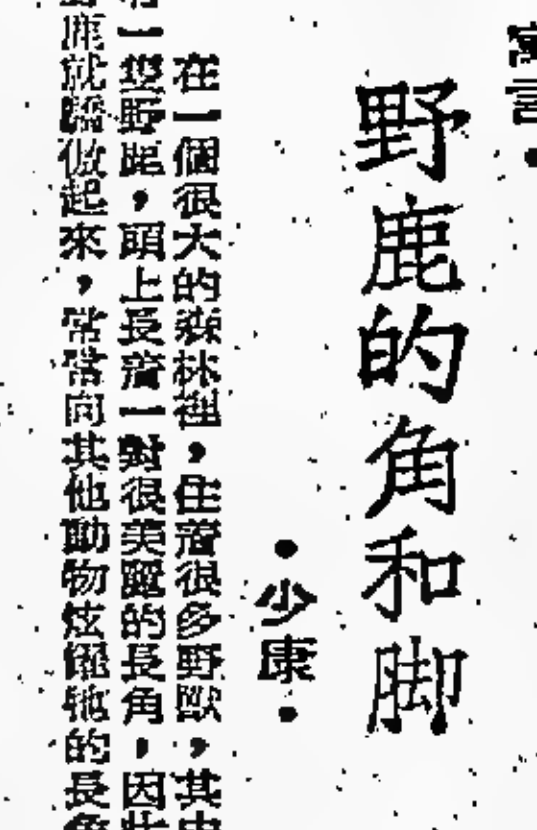 寓言·
野鹿的角和脚
·少康·
在一個很大的森林裡，住着很多野獸，其中
有一隻野鹿，頭上長着一對很美麗的長角，因此
野鹿就驕傲起來，常常向其他動物炫耀牠的長角